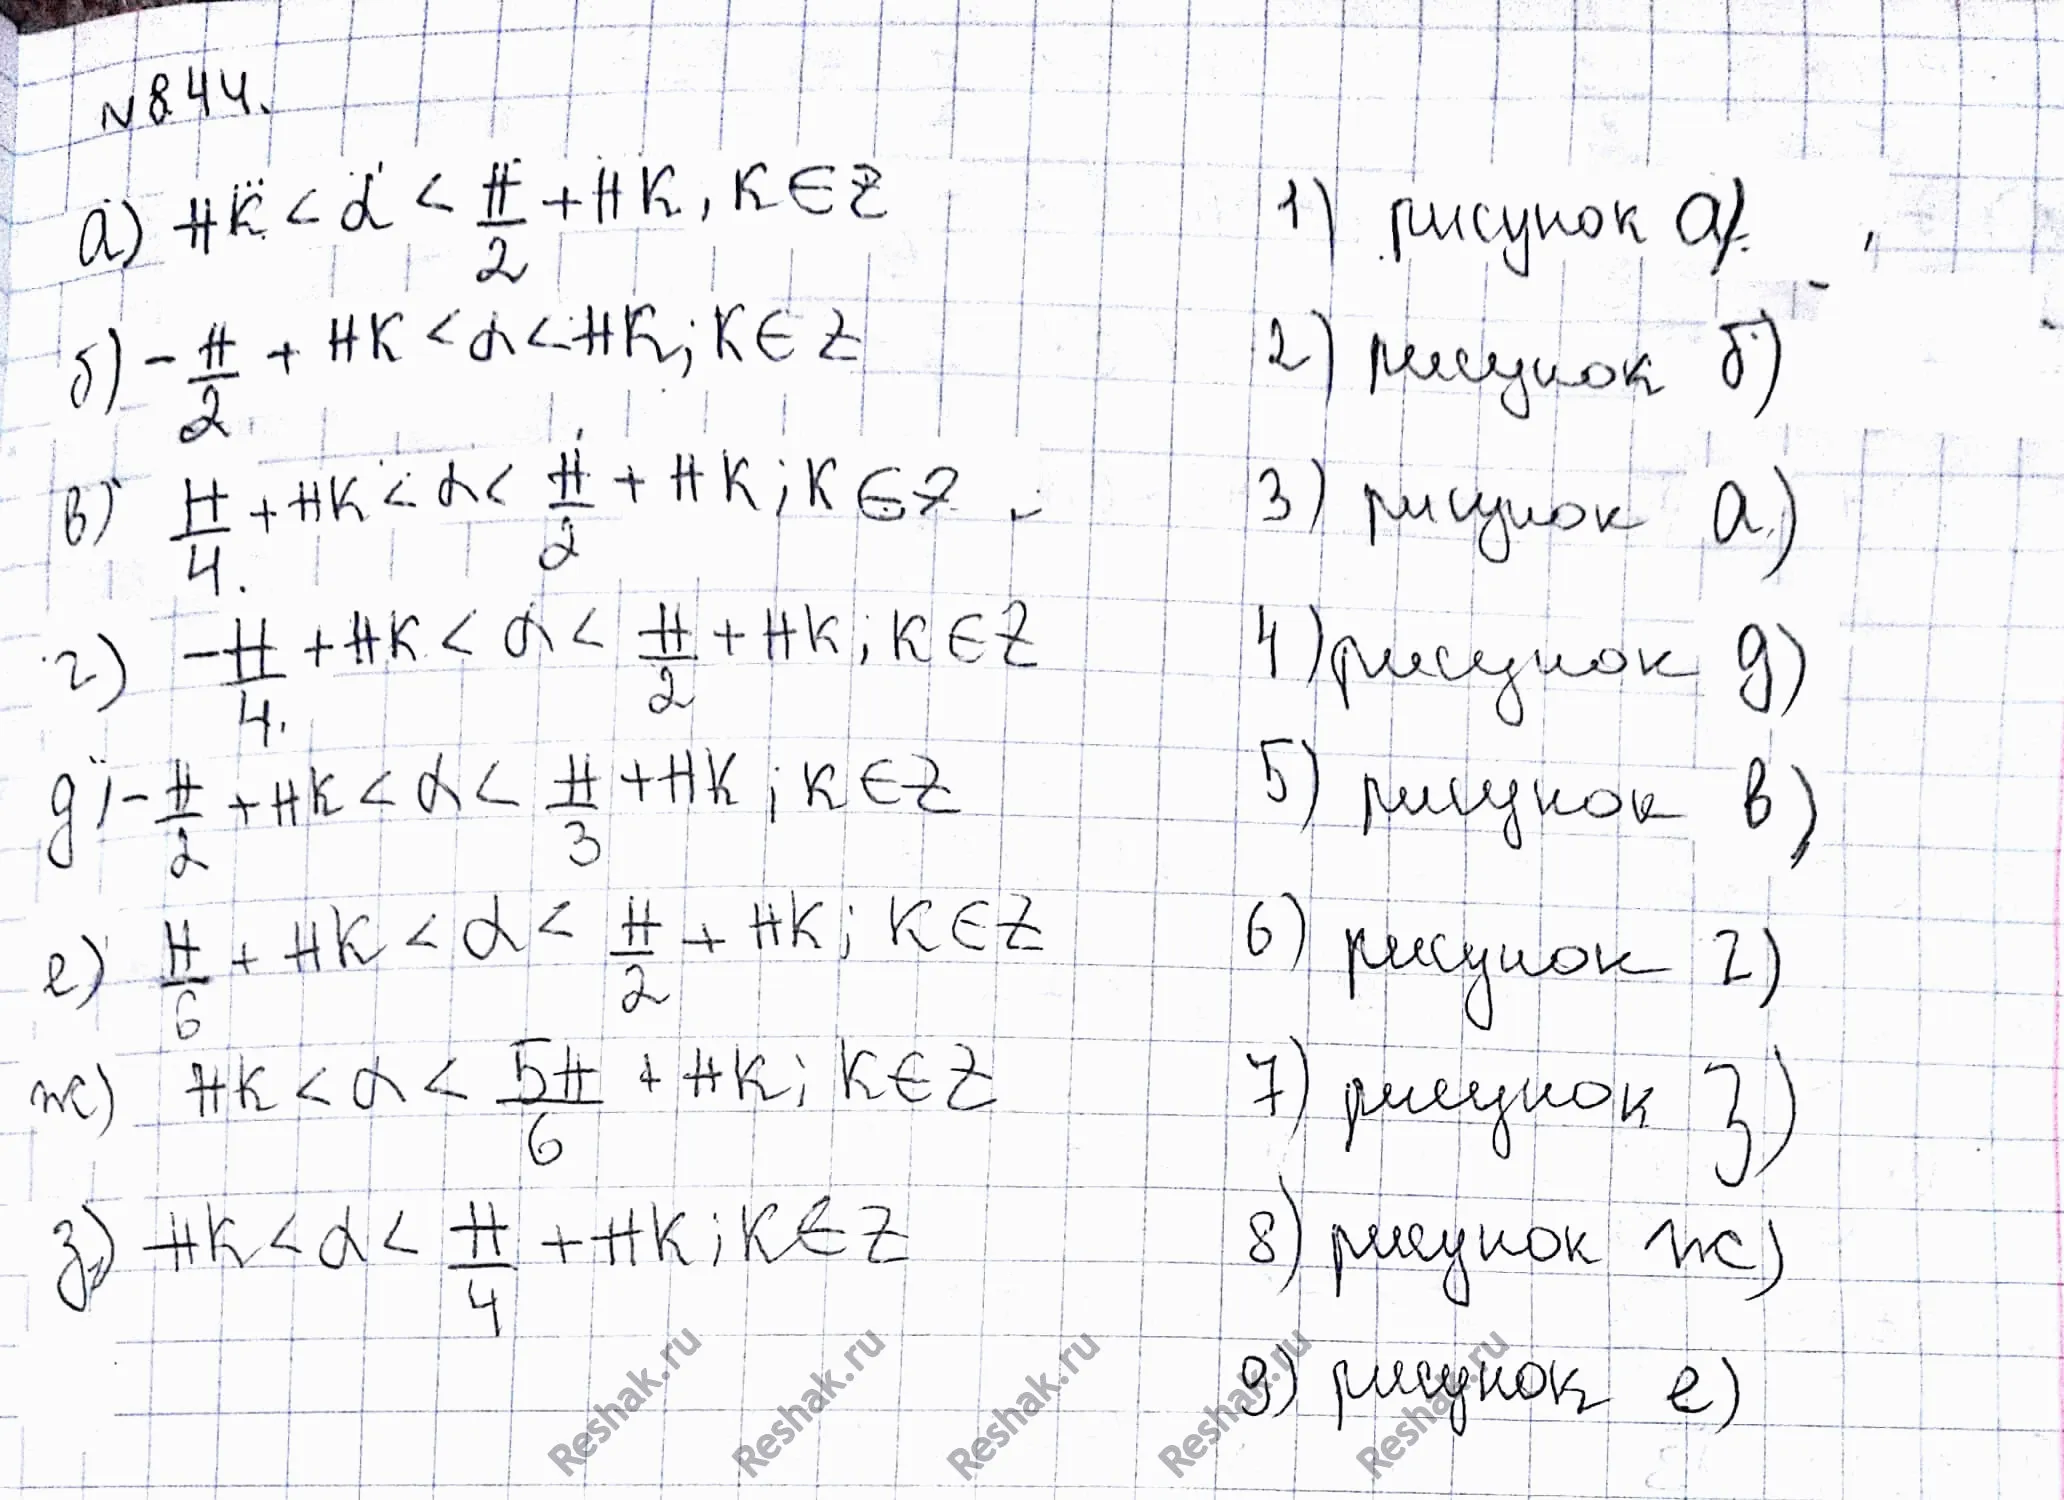 N 844.
а) πk < α < π/2 + πk, k ∈ Z
б) -π/2 + πk < α < πk; k ∈ Z
в) π/4 + πk < α < π/2 + πk; k ∈ Z
г) -π/4 + πk < α < π/2 + πk; k ∈ Z
д) -π/2 + πk < α < π/3 + πk; k ∈ Z
е) π/6 + πk < α < π/2 + πk; k ∈ Z
ж) πk < α < 5π/6 + πk; k ∈ Z
з) πk < α < π/4 + πk; k ∈ Z
1) рисунок а).
2) рисунок б)
3) рисунок а)
4) рисунок д)
5) рисунок в)
6) рисунок г)
7) рисунок з)
8) рисунок ж)
9) рисунок е)
Reshak.ru Reshak.ru Reshak.ru Reshak.ru Reshak.ru